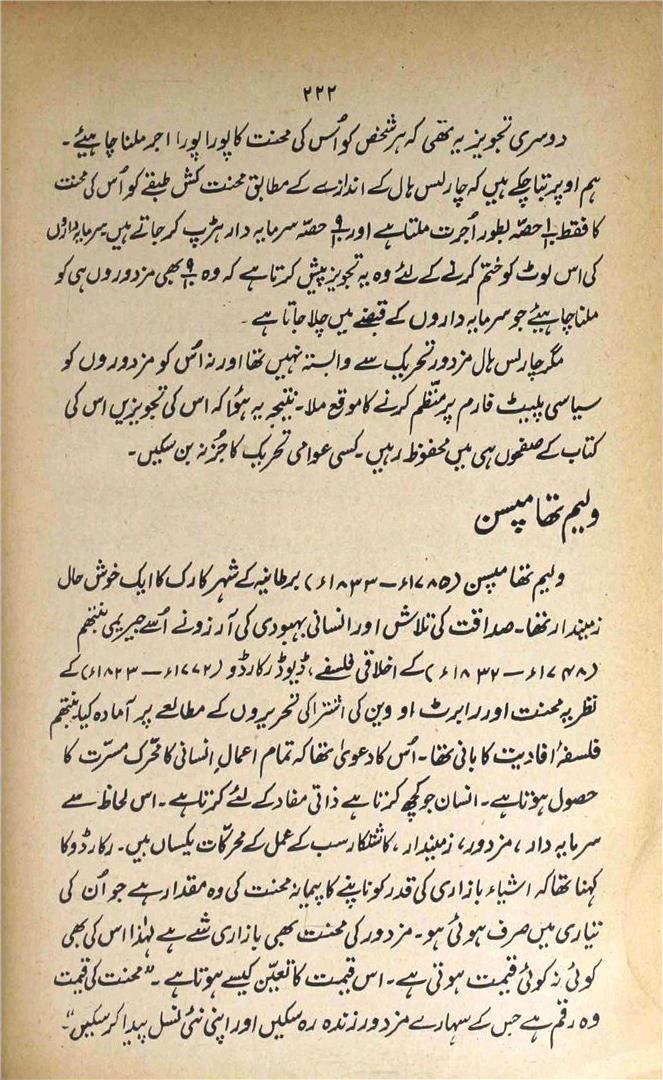 ۲۲۲
دوسری تجویز یہ تھی کہ ہر شخص کو اُس کی محنت کا پورا پورا اجر ملنا چاہیئے۔
ہم اوپر بتا چکے ہیں کہ چارلس ہال کے اندازے کے مطابق محنت کش طبقے کو اُس کی محنت
کا فقط ۱/۱۰ حصّہ بطور اُجرت ملتا ہے اور ۹/۱۰ حصّہ سرمایہ دار ہڑپ کر جاتے ہیں سرمایہ داروں
کی اس لوٹ کو ختم کرنے کے لئے وہ یہ تجویز پیش کرتا ہے کہ وہ ۹/۱۰ بھی مزدوروں ہی کو
ملنا چاہیئے جو سرمایہ داروں کے قبضے میں چلا جاتا ہے۔
مگر چارلس ہال مزدور تحریک سے وابستہ نہیں تھا اور نہ اُس کو مزدوروں کو
سیاسی پلیٹ فارم پر منظّم کرنے کا موقع ملا۔ نتیجہ یہ ہؤا کہ اس کی تجویزیں اس کی
کتاب کے صفحوں ہی میں محفوظ رہیں۔ کسی عوامی تحریک کا جُز نہ بن سکیں۔
ولیم تھامپسن
ولیم تھامپسن (۱۷۸۵ء – ۱۸۳۳ء) برطانیہ کے شہر کارک کا ایک خوش حال
زمیندار تھا۔ صداقت کی تلاش اور انسانی بہبودی کی آرزو نے اُسے جیریمی بنتھم
(۱۷۴۸ء – ۱۸۳۲ء) کے اخلاقی فلسفے، ڈیوڈ رکارڈو (۱۷۷۲ء – ۱۸۲۳ء) کے
نظریہ محنت اور رابرٹ اووین کی اشتراکی تحریروں کے مطالعے پر آمادہ کیا۔ بنتھم
فلسفۂ افادیت کا بانی تھا۔ اُس کا دعویٰ تھا کہ تمام اعمالِ انسانی کا محرّک مسرّت کا
حصول ہوتا ہے۔ انسان جو کچھ کرتا ہے ذاتی مفاد کے لئے کرتا ہے۔ اس لحاظ سے
سرمایہ دار، مزدور، زمیندار، کاشتکار سب کے عمل کے محرکّات یکساں ہیں۔ رکارڈو کا
کہنا تھا کہ اشیاء بازاری کی قدر کو ناپنے کا پیمانہ محنت کی وہ مقدار ہے جو اُن کی
تیاری میں صرف ہوئی ہو۔ مزدور کی محنت بھی بازاری شے ہے لہٰذا اس کی بھی
کوئی نہ کوئی قیمت ہوتی ہے۔ اس قیمت کا تعیّن کیسے ہوتا ہے۔ "محنت کی قیمت
وہ رقم ہے جس کے سہارے مزدور زندہ رہ سکیں اور اپنی نئی نسل پیدا کر سکیں"۔